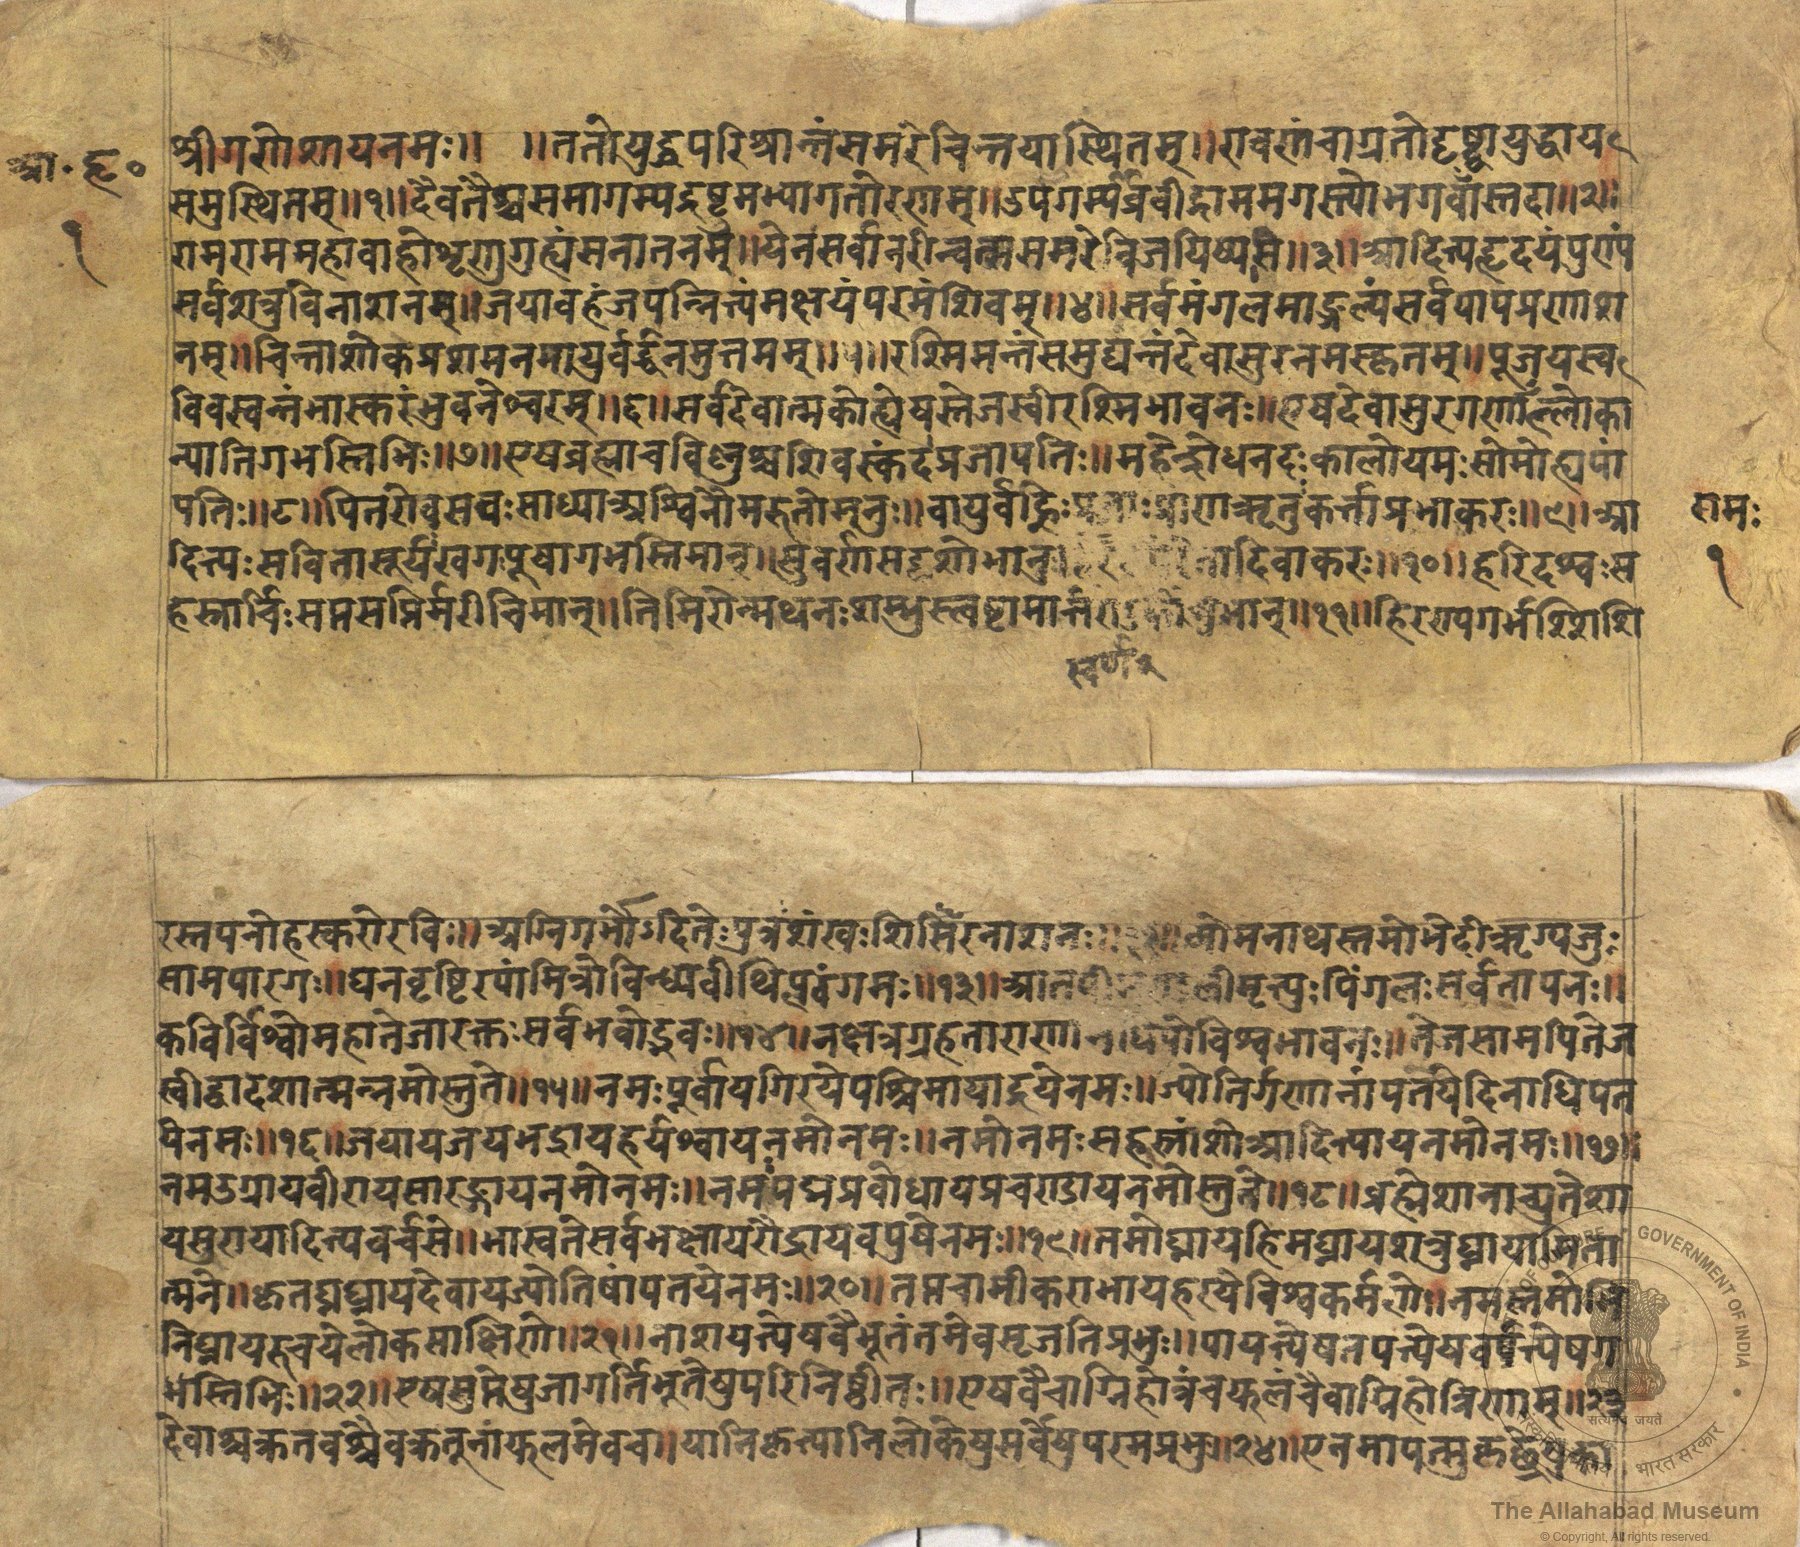 श्रीगणेशायनमः॥ ॥ततोयुद्धपरिश्रान्तंसमरेचिन्तयास्थितम्॥रावणंचाग्रतोदृष्ट्वायुद्धाय
आ॰हृ॰
समुपस्थितम्॥१॥दैवतैश्चसमागम्यद्रष्टुमभ्यागतोरणम्॥उपगम्याब्रवीद्राममगस्त्योभगवाँस्तदा॥२॥
१
रामराममहावाहोशृणुगुह्यंसनातनम्॥येनसर्वानरीन्वत्ससमरेविजयिष्यसि॥३॥आदित्यहृदयंपुण्यं
सर्वशत्रुविनाशनम्॥जयावहंजपन्नित्यंमक्षयंपरमंशिवम्॥४॥सर्वमंगलमाङ्गल्यंसर्वपापप्रणाश
नम्॥चिन्ताशोकप्रशमनमायुर्वर्द्धनमुत्तमम्॥५॥रश्मिमन्तंसमुद्यन्तंदेवासुरनमस्कृतम्॥पूजयस्व
विवस्वन्तंभास्करंभुवनेश्वरम्॥६॥सर्वदेवात्मकोह्येषस्तेजस्वीरश्मिभावनः॥एषदेवासुरगणाँल्लोका
न्पातिगभस्तिभिः॥७॥एषब्रह्माचविष्णुश्चशिवस्कंदप्रजापतिः॥महेन्द्रोधनदःकालोयमःसोमोह्यपां
पतिः॥८॥पितरोवसवःसाध्याअश्विनौमरुतोमनुः॥वायुर्वह्निःप्रजाःप्राणऋतुकर्त्ताप्रभाकरः॥९॥आ
रामः
दित्यःसवितासूर्यखगपूषागभस्तिमान्॥सुवर्णसदृशोभानु दिवाकरः॥१०॥हरिदश्वःस
१
हस्रार्चिःसप्तसप्तिर्मरीचिमान्॥तिमिरोन्मथनःशम्भुस्त्वष्टामार्त्तण्डअंशुमान्॥११॥हिरण्यगर्भशिशि
स्वर्ण२
रस्तपनोहस्करोरविः॥अग्निगर्भोऽदितेःपुत्रशंखःशिसिँरनाशनः॥ व्योमनाथस्तमोभेदीऋग्यजुः
सामपारगः॥घनवृष्टिरपांमित्रोविन्ध्यवीथिप्लवंगमः॥१३॥आतपी मृत्युःपिंगलःसर्वतापनः॥
कविर्विश्वोमहातेजारक्तःसर्वभवोद्भवः॥१४॥नक्षत्रग्रहताराणामधिपोविश्वभावनः॥तेजसामपितेज
स्वीद्वादशात्मन्नमोस्तुते॥१५॥नमःपूर्वायगिरयेपश्चिमायाद्रयेनमः॥ज्योतिर्गणानांपतयेदिनाधिपत
येनमः॥१६॥जयायजयभद्रायहर्यश्वायनमोनमः॥नमोनमःसहस्रांशोआदित्यायनमोनमः॥१७॥
नमउग्रायवीरायसारङ्गायनमोनमः॥नमःपद्मप्रवोधायप्रचण्डायनमोस्तुते॥१८॥ब्रह्मेशानाच्युतेशा
यसुरायादित्यवर्चसे॥भास्वतेसर्वभक्षायरौद्रायवपुषेनमः॥१९॥तमोघ्नायहिमघ्नायशत्रुघ्नायामिता
त्मने॥कृतघ्नघ्नायदेवायज्योतिषांपतयेनमः॥२०॥तप्तचामीकराभायहरयेविश्वकर्मणे॥नमस्तमोभि
निघ्नायरुचयेलोकसाक्षिणे॥२१॥नाशयत्येषवैभूतंतमेवसृजतिप्रभुः॥पायत्येषतपत्येषवर्षत्येषग
भस्तिभिः॥२२॥एषसुप्तेषुजागर्तिभूतेषुपरिनिष्ठीतः॥एषवैचाग्निहोत्रंचफलंचैवाग्निहोत्रिणाम्॥२३
देवाश्चक्रतवश्चैवक्रतूनांफलमेवच॥यानिकृत्यानिलोकेषुसर्वेषुपरमप्रभुः॥२४॥एनमापत्सुकृच्छ्रेषुका
GOVERNMENT OF INDIA
सत्यमेव जयते
भारत सरकार
The Allahabad Museum
© Copyright, All rights reserved.